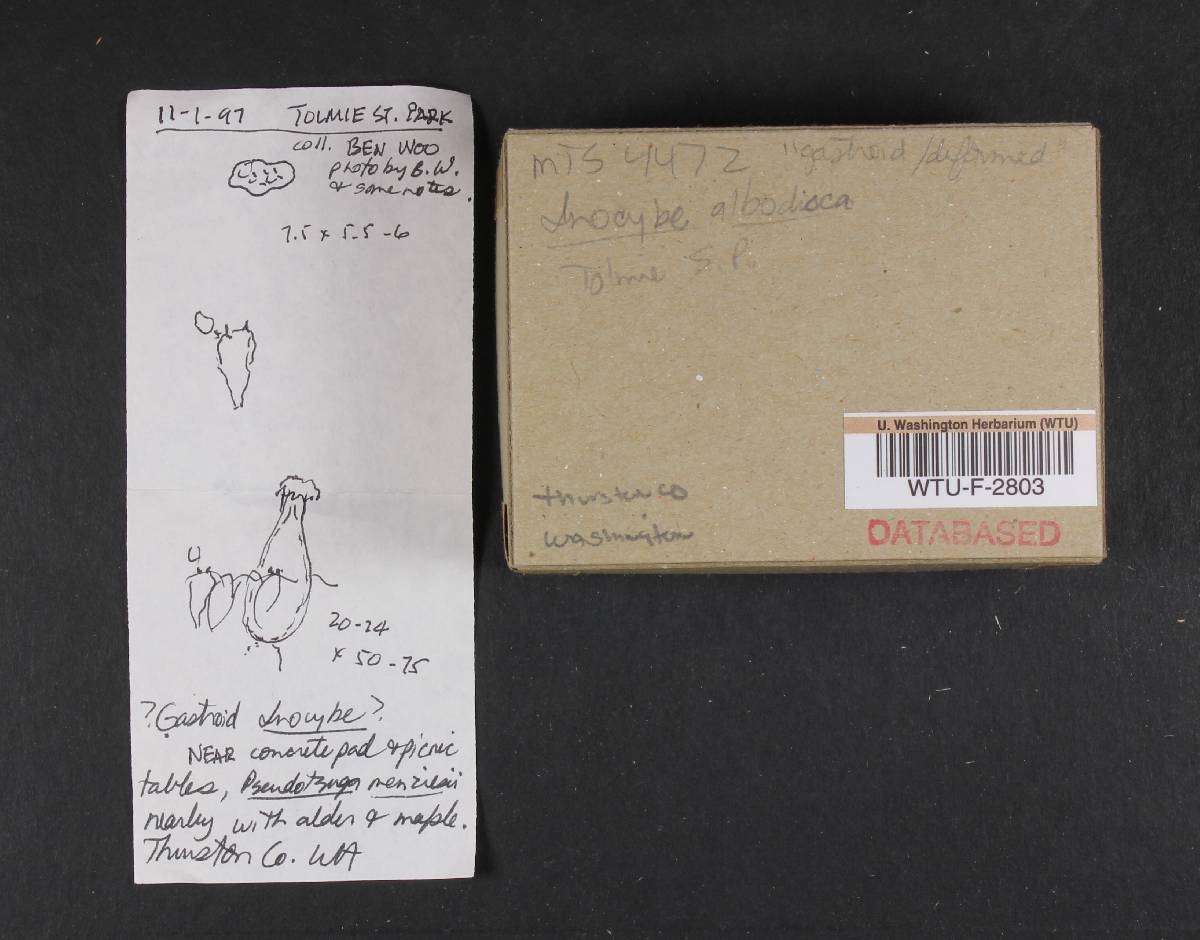 11-1-97 TOLMIE ST. PARK
coll. BEN WOO
photo by B.W.
& some notes.
7.5 x 5.5-6
20-24
x 50-75
?Gastroid Inocybe?
NEAR concrete pad & picnic
tables, Pseudotsuga menziesii
nearby with alder & maple.
Thurston Co. WA
MTS 4472 "gastroid/deformed"
Inocybe albodisca
Tolmie S.P.
Thurston CO
Washington
U. Washington Herbarium (WTU)
WTU-F-2803
DATABASED